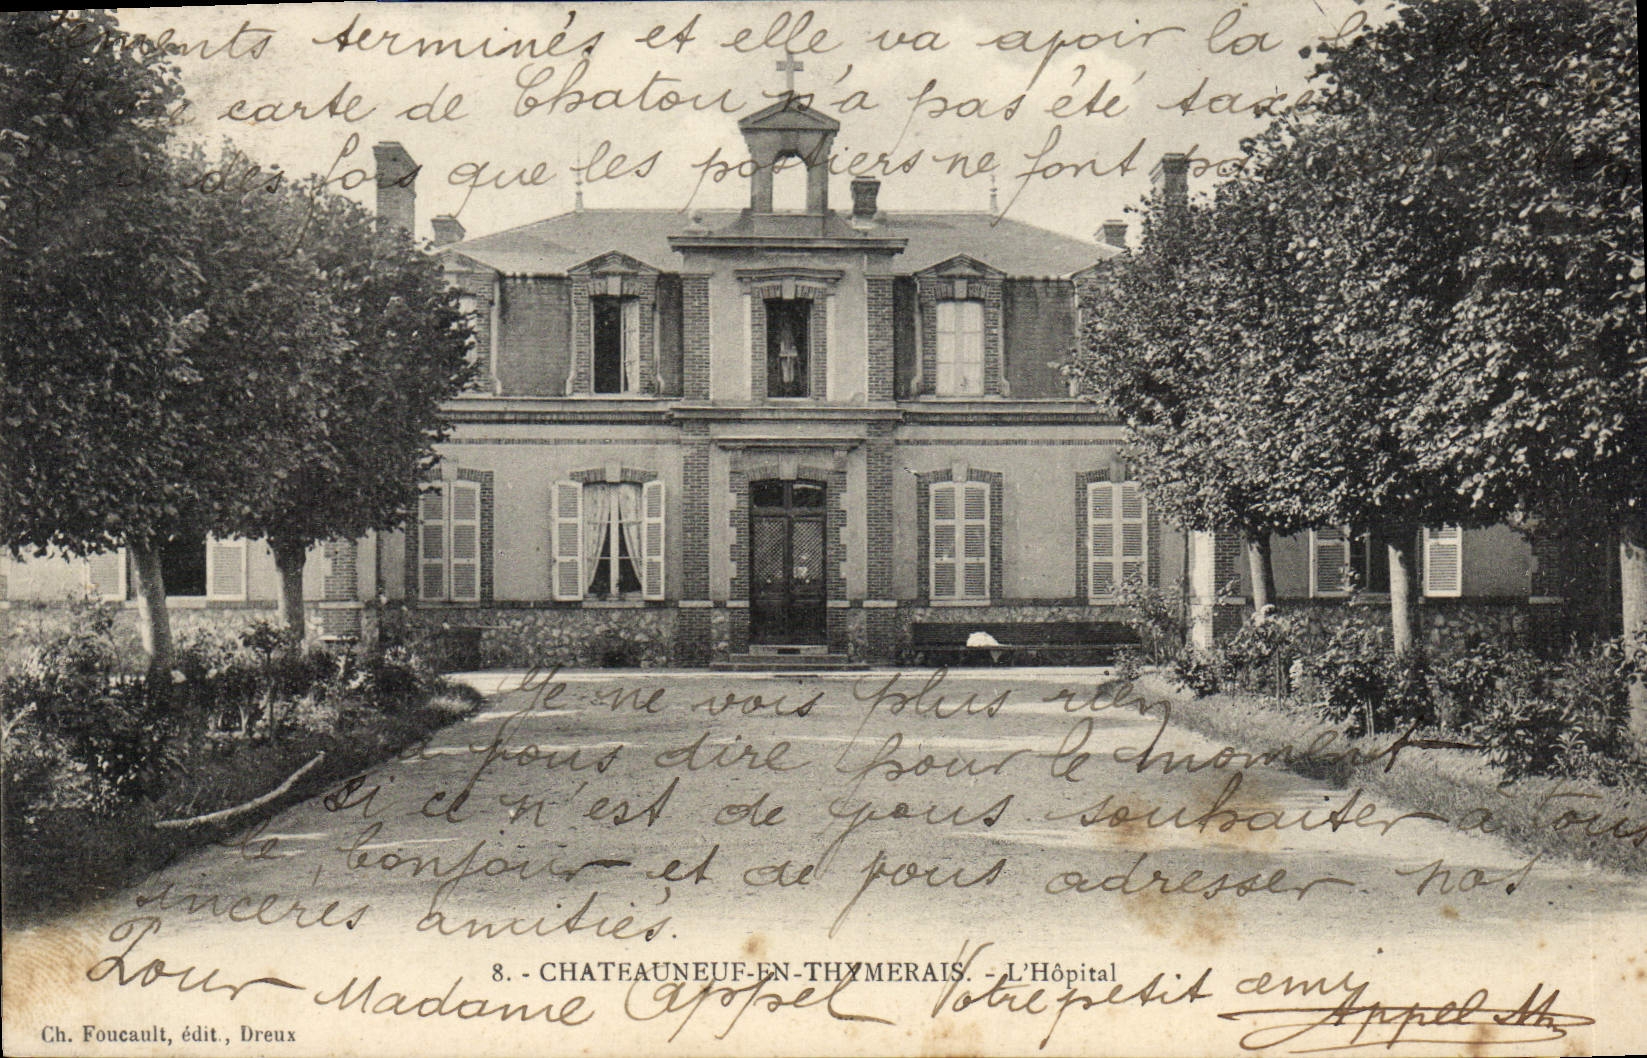 ements terminés et elle va avoir la
carte de Chatou n'a pas été taxée
des fois que les postiers ne font pas
Je ne vois plus rien
à vous dire pour le moment
si ce n'est de vous souhaiter à tous
le bonjour et de vous adresser nos
sincères amitiés.
8. - CHATEAUNEUF-EN-THYMERAIS. - L'Hôpital
Pour Madame Appel Votre petit ami
Appel
Ch. Foucault, édit., Dreux